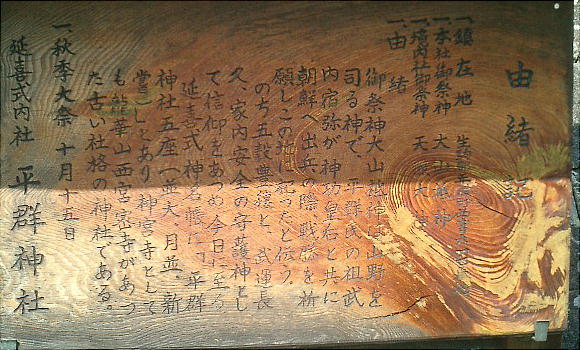 由緒記
一、鎮座地
一、本社御祭神 大山祇神
一、境内社御祭神 天
一、由緒
御祭神大山祇神は山野を
司る神で、平群氏の祖武
内宿弥が神功皇后と共に
朝鮮へ出兵の際戦勝を祈
願しこの地に祀ったと伝う。
のち五穀豊穣と、武運長
久、家内安全の守護神とし
て信仰をあつめ今日に至る
延喜式神名帳に「平群
神社五座(並大、月並、新
嘗)」とあり神宮寺として
も龍華山西宮密寺があっ
た古い社格の神社である。
一、秋季大祭 十月十五日
延喜式内社 平群神社